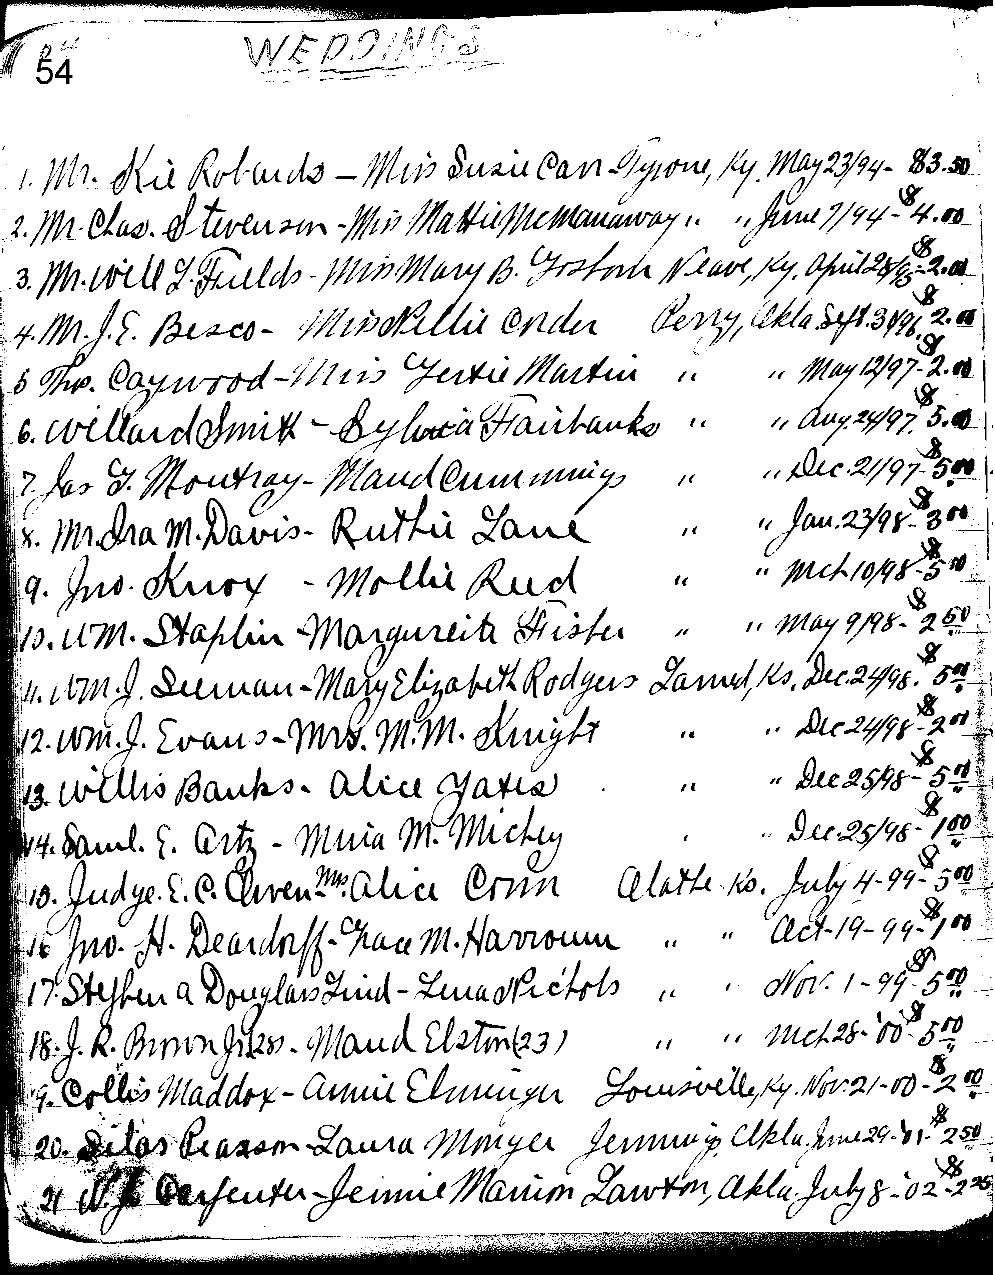 54
WEDDINGS
1. Mr. Kie Robards - Miss Susie Carr - Tyrone, Ky. May 23/94 - $3.50
2. Mr. Chas. Stevenson - Miss Mattie McManaway " " June 7/94 - $4.00
3. Mr. Will T. Fields - Miss Mary B. Neave, Ky. April 28/95 - $2.00
4. Mr. J. E. Besco - Miss Nellie Corder Perry, Okla. Sept. 3/96. $2.00
5 Thos. Caywood - Miss Gertie Martin " " May 12/97 - $2.00
6. Willard Smith - Sylvia Fairbanks " " Aug. 24/97. $5.00
7. Jas T. Montray - Maud Cummings " " Dec. 21/97 - $5.00
8. Mr. Ira M. Davis - Ruthie Lane " " Jan. 23/98 - $3.00
9. Jno. Knox - Mollie Reed " " Mch. 10/98 - $5.00
10. Wm. Staplin - Margureite Fister " " May 9/98 - $2.50
11. Wm. J. Seeman - Mary Elizabeth Rodgers Larned, Ks. Dec. 24/98. $5.00
12. Wm. J. Evans - Mrs. M. M. Knight " " Dec 24/98 - $2.00
13. Willis Banks - Alice Yates " " Dec 25/98 - $5.00
14. Saml. E. Artz - M. Michey " Dec. 25/98 - $1.00
15. Judge. E. C. Owen Mrs. Alice Conn Olathe Ks. July 4-99 - $5.00
16 Jno. H. Deardorff - Grace M. Harroun " " Oct-19-99 - $1.00
17. Stephen A Douglass Lind - Lena Nichols " " Nov. 1-99 $5.00
18. J. R. Brown Jr. (28) - Maud Elston (23) " " Mch. 28-'00 - $5.00
19. Collis Maddox - Annie Elminger Louisville, Ky. Nov. 21-00 - $2.00
20. Silas Pearson - Laura Monyer Jennings, Okla. June 29-'01 - $2.50
21 N. J. Carpenter - Jennie Marion Lawton, Okla. July 8-'02 - $2.25